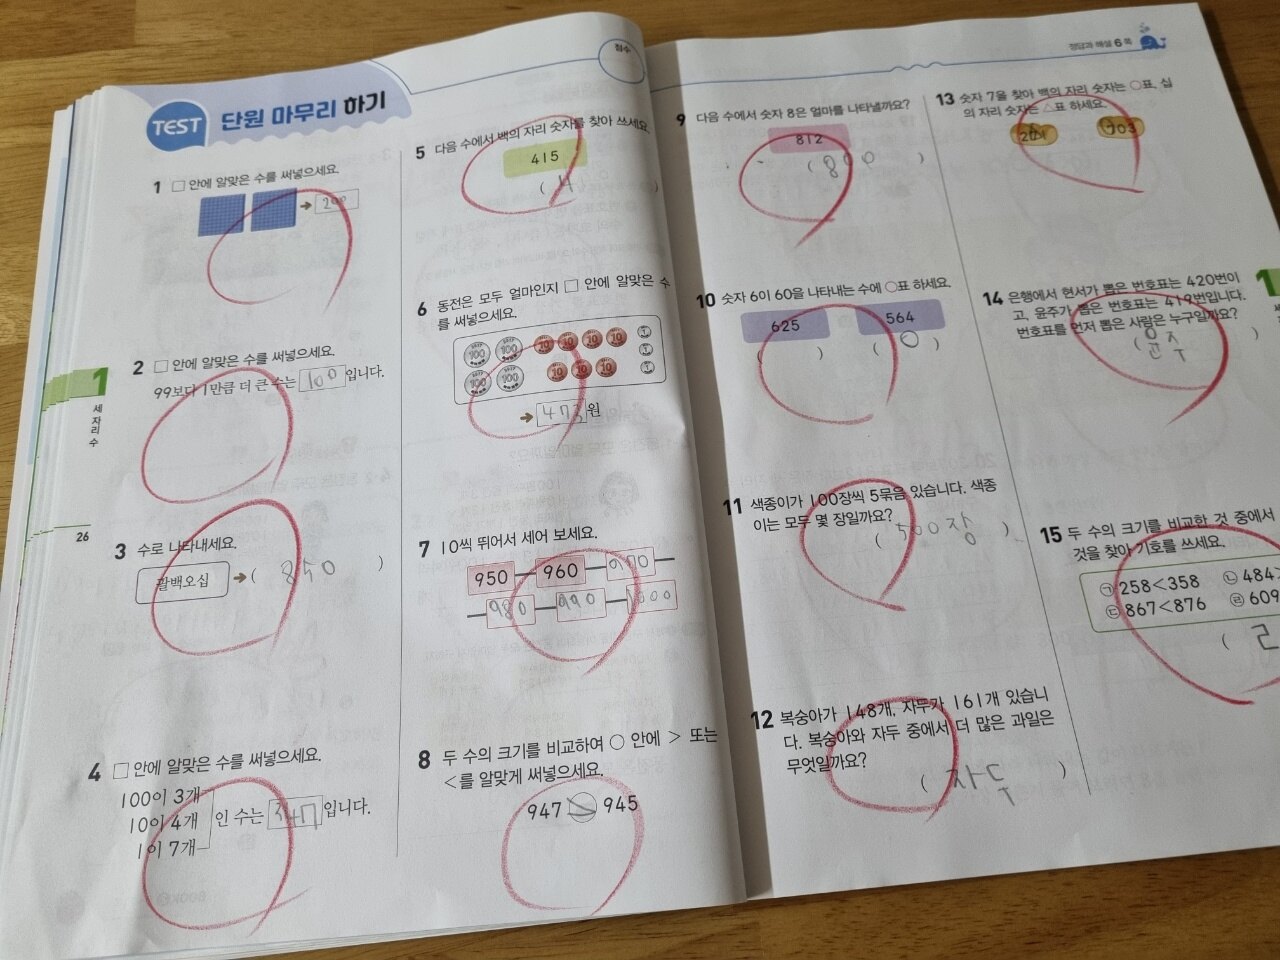 TEST 단원 마무리 하기
점수
1 □ 안에 알맞은 수를 써넣으세요.
200
2 □ 안에 알맞은 수를 써넣으세요.
99보다 1만큼 더 큰 수는 100 입니다.
3 수로 나타내세요.
팔백오십 ➔ ( 850 )
4 □ 안에 알맞은 수를 써넣으세요.
100이 3개
10이 4개 인 수는 347 입니다.
1이 7개
1
세 자리 수
26
5 다음 수에서 백의 자리 숫자를 찾아 쓰세요.
415
( 4 )
6 동전은 모두 얼마인지 □ 안에 알맞은 수
를 써넣으세요.
100 100 10 10 10 10 1
1
100 100 10 10 10 1
➔ 473 원
7 10씩 뛰어서 세어 보세요.
950 960 970
980 990 1000
8 두 수의 크기를 비교하여 ○ 안에 > 또는
<를 알맞게 써넣으세요.
947 > 945
정답과 해설 6쪽
9 다음 수에서 숫자 8은 얼마를 나타낼까요?
812
( 800 )
10 숫자 6이 60을 나타내는 수에 ○표 하세요.
625 564
( ) ( ○ )
11 색종이가 100장씩 5묶음 있습니다. 색종
이는 모두 몇 장일까요?
( 500장 )
12 복숭아가 148개, 자두가 161개 있습니
다. 복숭아와 자두 중에서 더 많은 과일은
무엇일까요?
( 자두 )
13 숫자 7을 찾아 백의 자리 숫자는 ○표, 십
의 자리 숫자는 △표 하세요.
703
14 은행에서 현서가 뽑은 번호표는 420번이
고, 윤주가 뽑은 번호표는 419번입니다.
번호표를 먼저 뽑은 사람은 누구일까요?
( 윤주 )
1
15 두 수의 크기를 비교한 것 중에서
것을 찾아 기호를 쓰세요.
㉠ 258<358 ㉡ 484>
㉢ 867<876 ㉣ 609
( ㄹ